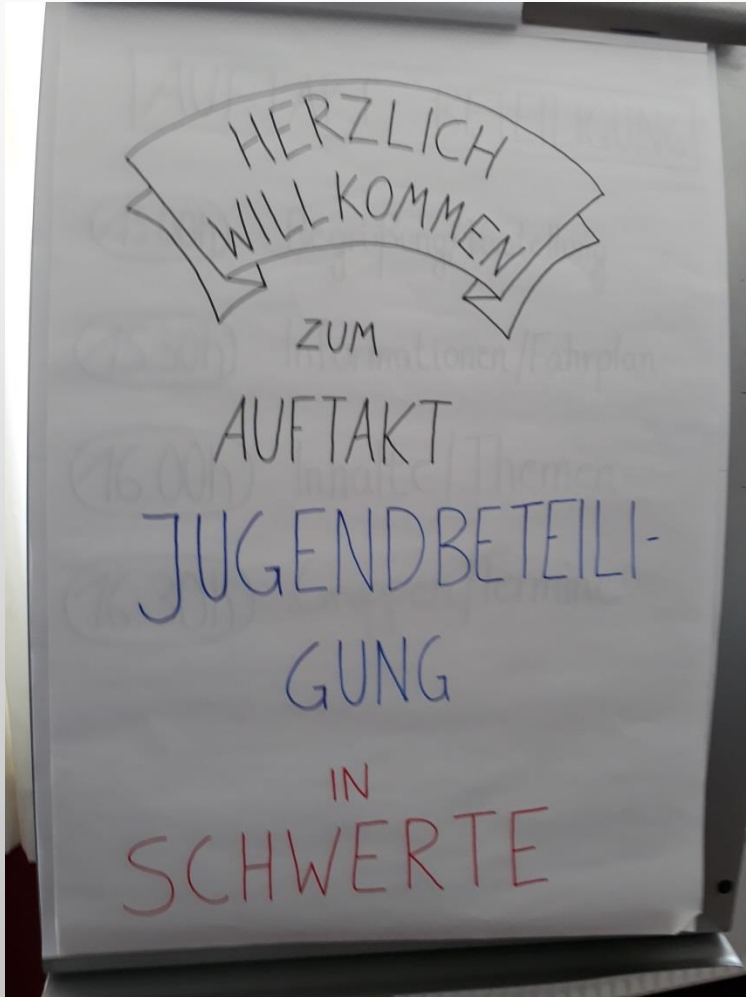 HERZLICH
WILLKOMMEN
ZUM
AUFTAKT
JUGENDBETEILI-
GUNG
IN
SCHWERTE